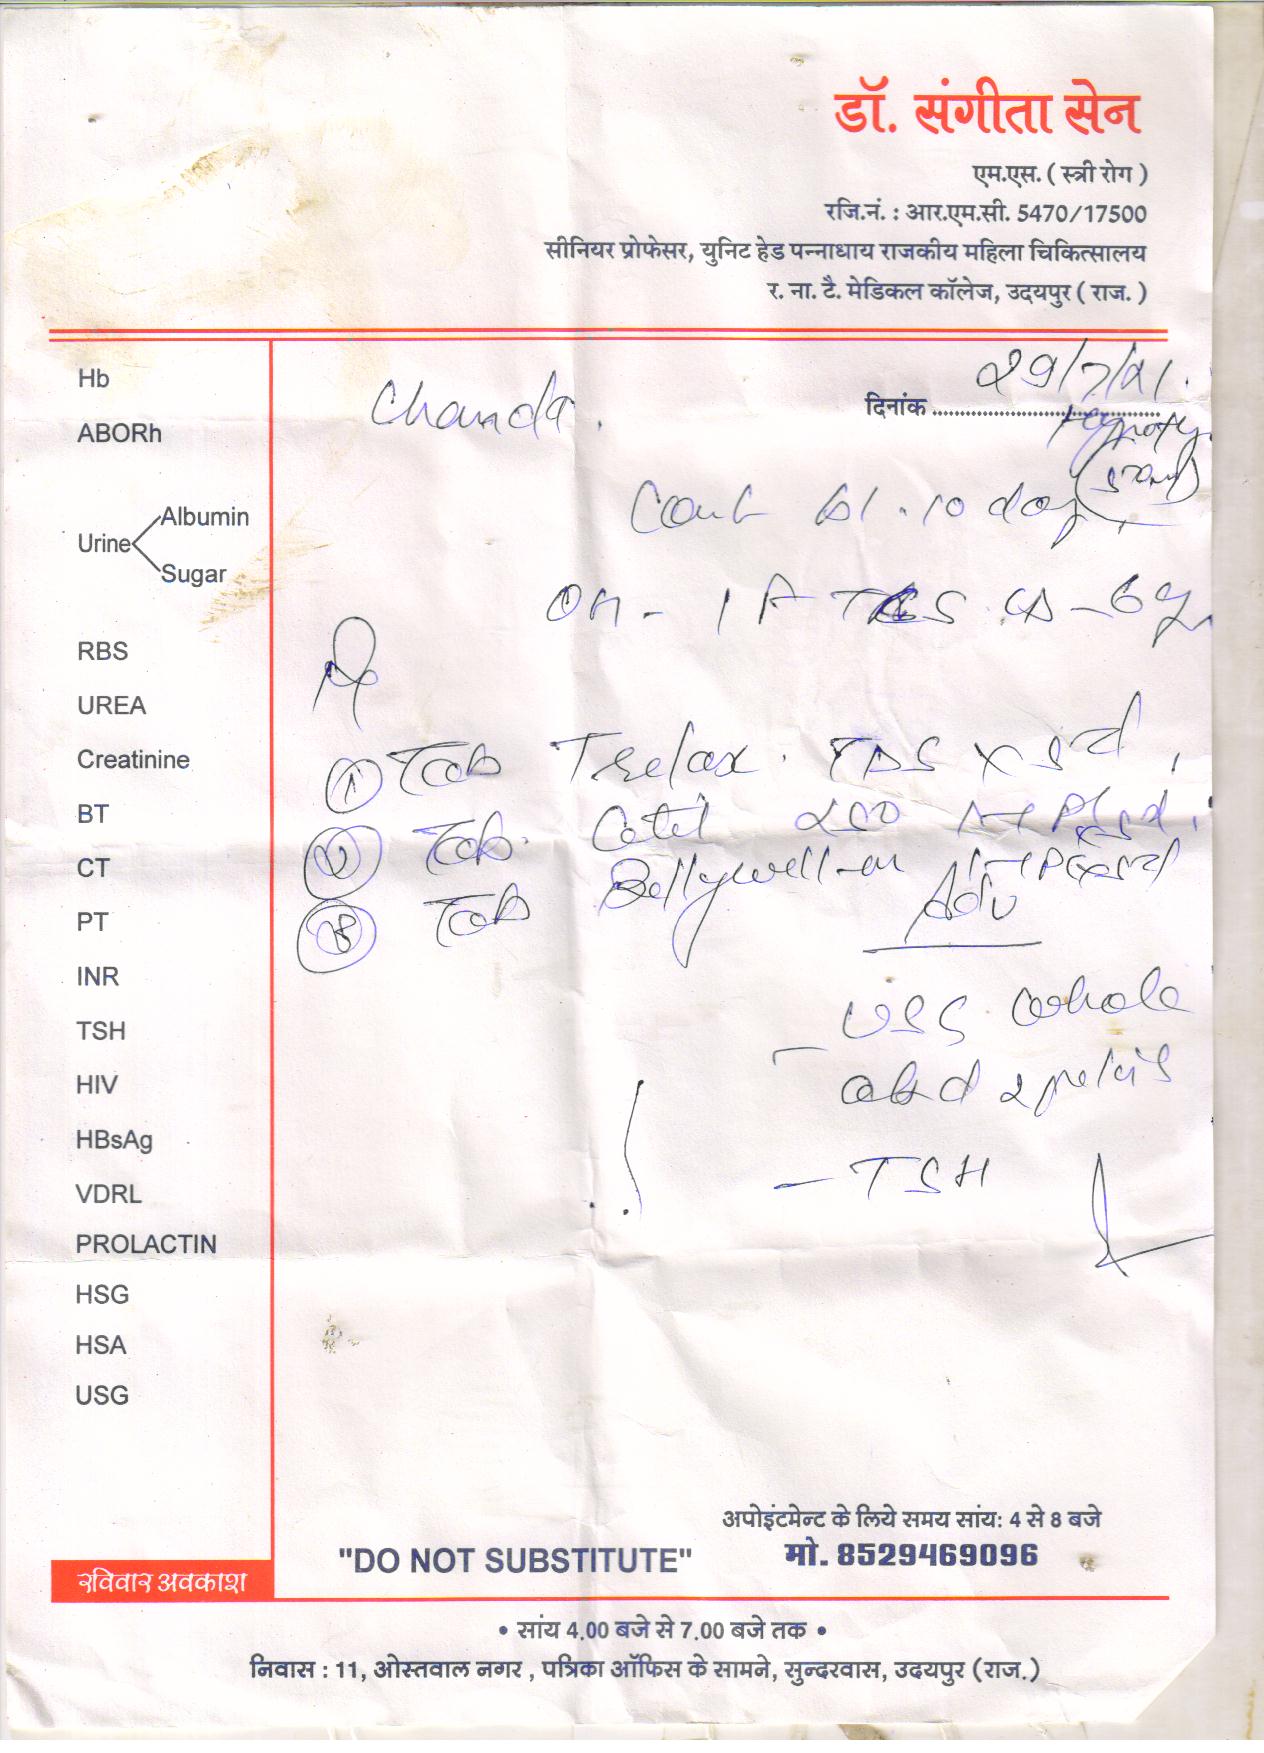 डॉ. संगीता सेन
एम.एस. ( स्त्री रोग )
रजि.नं. : आर.एम.सी. 5470/17500
सीनियर प्रोफेसर, युनिट हेड पन्नाधाय राजकीय महिला चिकित्सालय
र. ना. टै. मेडिकल कॉलेज, उदयपुर ( राज. )
Chanda.
दिनांक 29/7/21.
Hb
ABORh
Urine
Albumin
Sugar
RBS
UREA
Creatinine
BT
CT
PT
INR
TSH
HIV
HBsAg
VDRL
PROLACTIN
HSG
HSA
USG
10 day
Rx
① Tab Trelax. TDS x 5d.
② Tab. Cetil 250
③ Tab Bellywell-m
Adv
- USG whole
abd & pelvis
- TSH
अपोइंटमेन्ट के लिये समय सांय: 4 से 8 बजे
"DO NOT SUBSTITUTE" मो. 8529469096
रविवार अवकाश
• सांय 4.00 बजे से 7.00 बजे तक •
निवास : 11, ओस्तवाल नगर , पत्रिका ऑफिस के सामने, सुन्दरवास, उदयपुर (राज.)